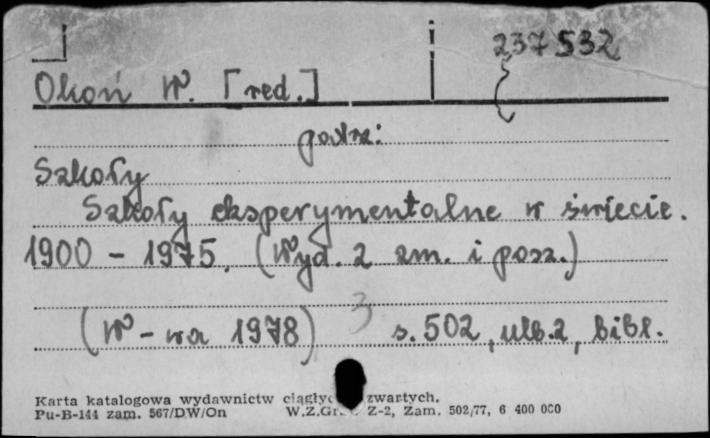 237532
Okoń W. [red.]
patrz:
Szkoły
Szkoły eksperymentalne w świecie.
1900 - 1975. (Wyd. 2 zm. i posz.)
(W-wa 1978) 3 s. 502, nlb. 2, bibl.
Karta katalogowa wydawnictw zwartych.
Pu-B-144 zam. 567/DW/On Z-2, Zam. 502/77, 6 400 000